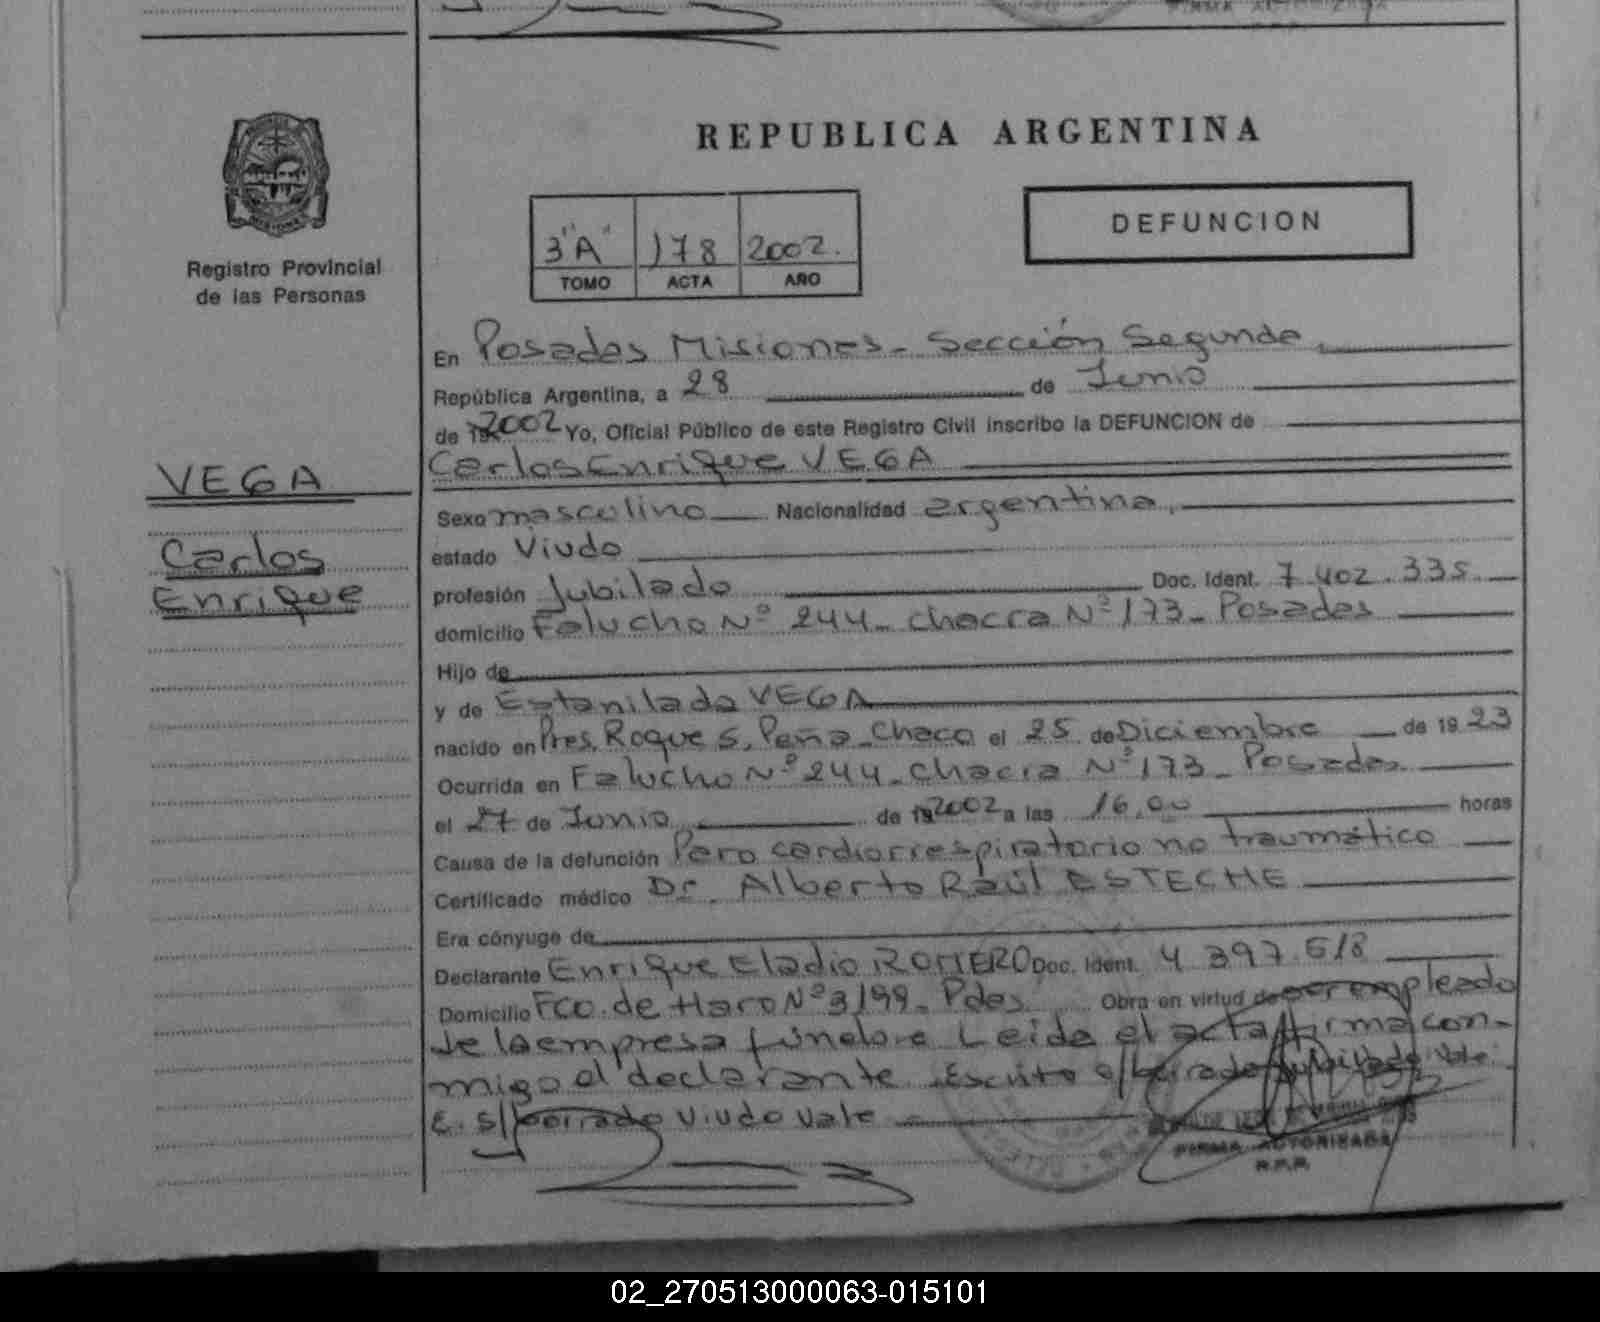 REPUBLICA ARGENTINA
Registro Provincial
de las Personas
3"A" 178 2002.
TOMO ACTA AÑO
DEFUNCION
VEGA
Carlos
Enrique
En Posadas Misiones - Sección Segunda
República Argentina, a 28 de Junio
de 2002 Yo, Oficial Público de este Registro Civil inscribo la DEFUNCION de
Carlos Enrique VEGA
Sexo masculino Nacionalidad argentina
estado Viudo
profesión Jubilado Doc. Ident. 7.402.335
domicilio Falucho Nº 244 - chacra Nº 173 - Posadas
Hijo de
y de Estanilada VEGA
nacido en Pres. Roque S. Peña - Chaco el 25 de Diciembre de 1923
Ocurrida en Falucho Nº 244 - chacra Nº 173 - Posadas
el 27 de Junio de 2002 a las 16,00 horas
Causa de la defunción Paro cardiorrespiratorio no traumático
Certificado médico Dr. Alberto Raúl ESTECHE
Era cónyuge de
Declarante Enrique Eladio ROMERO Doc. Ident. 4.397.518
Domicilio Fco. de Haro Nº 3199 - Pdas Obra en virtud de ser empleado
de la empresa fúnebre Leida el acta firma con-
migo el declarante. Escrito s/borrado Jubilado Vale
E. s/borrado Viudo Vale
FIRMA AUTORIZADA
R.P.P.
02_270513000063-015101